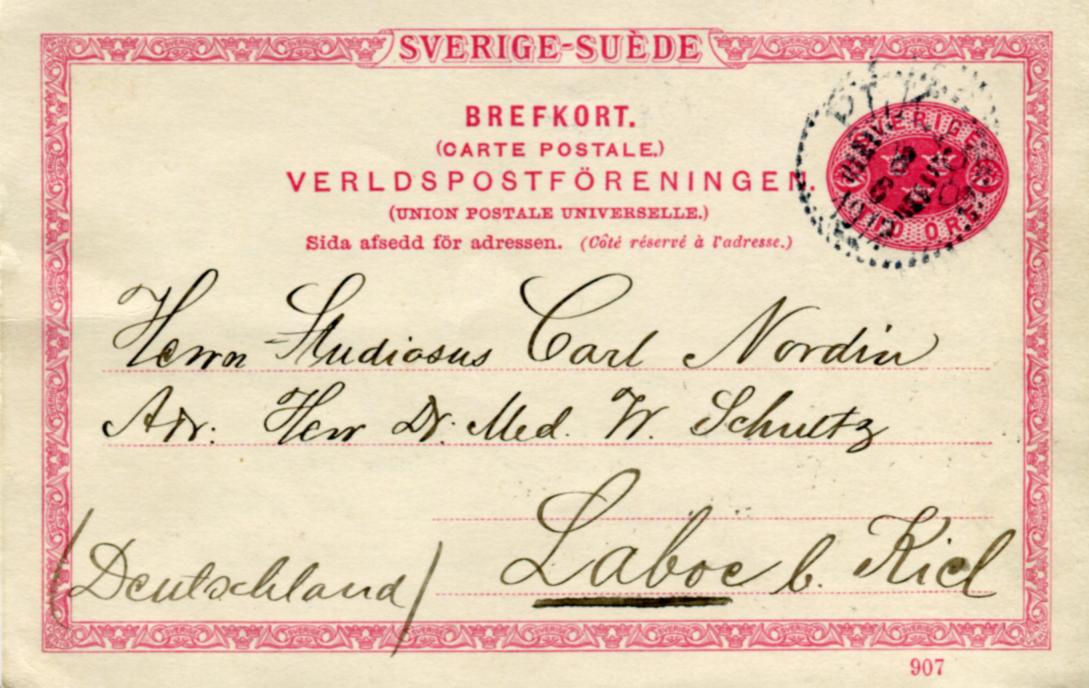 SVERIGE-SUÈDE
BREFKORT.
(CARTE POSTALE.)
VERLDSPOSTFÖRENINGEN.
(UNION POSTALE UNIVERSELLE.)
Sida afsedd för adressen. (Côté réservé à l'adresse.)
SVERIGE
TIO ORE
Herrn Studiosus Carl Nordin
Adr. Herr Dr. Med. W. Schultz
Laboë b. Kiel
(Deutschland)
907